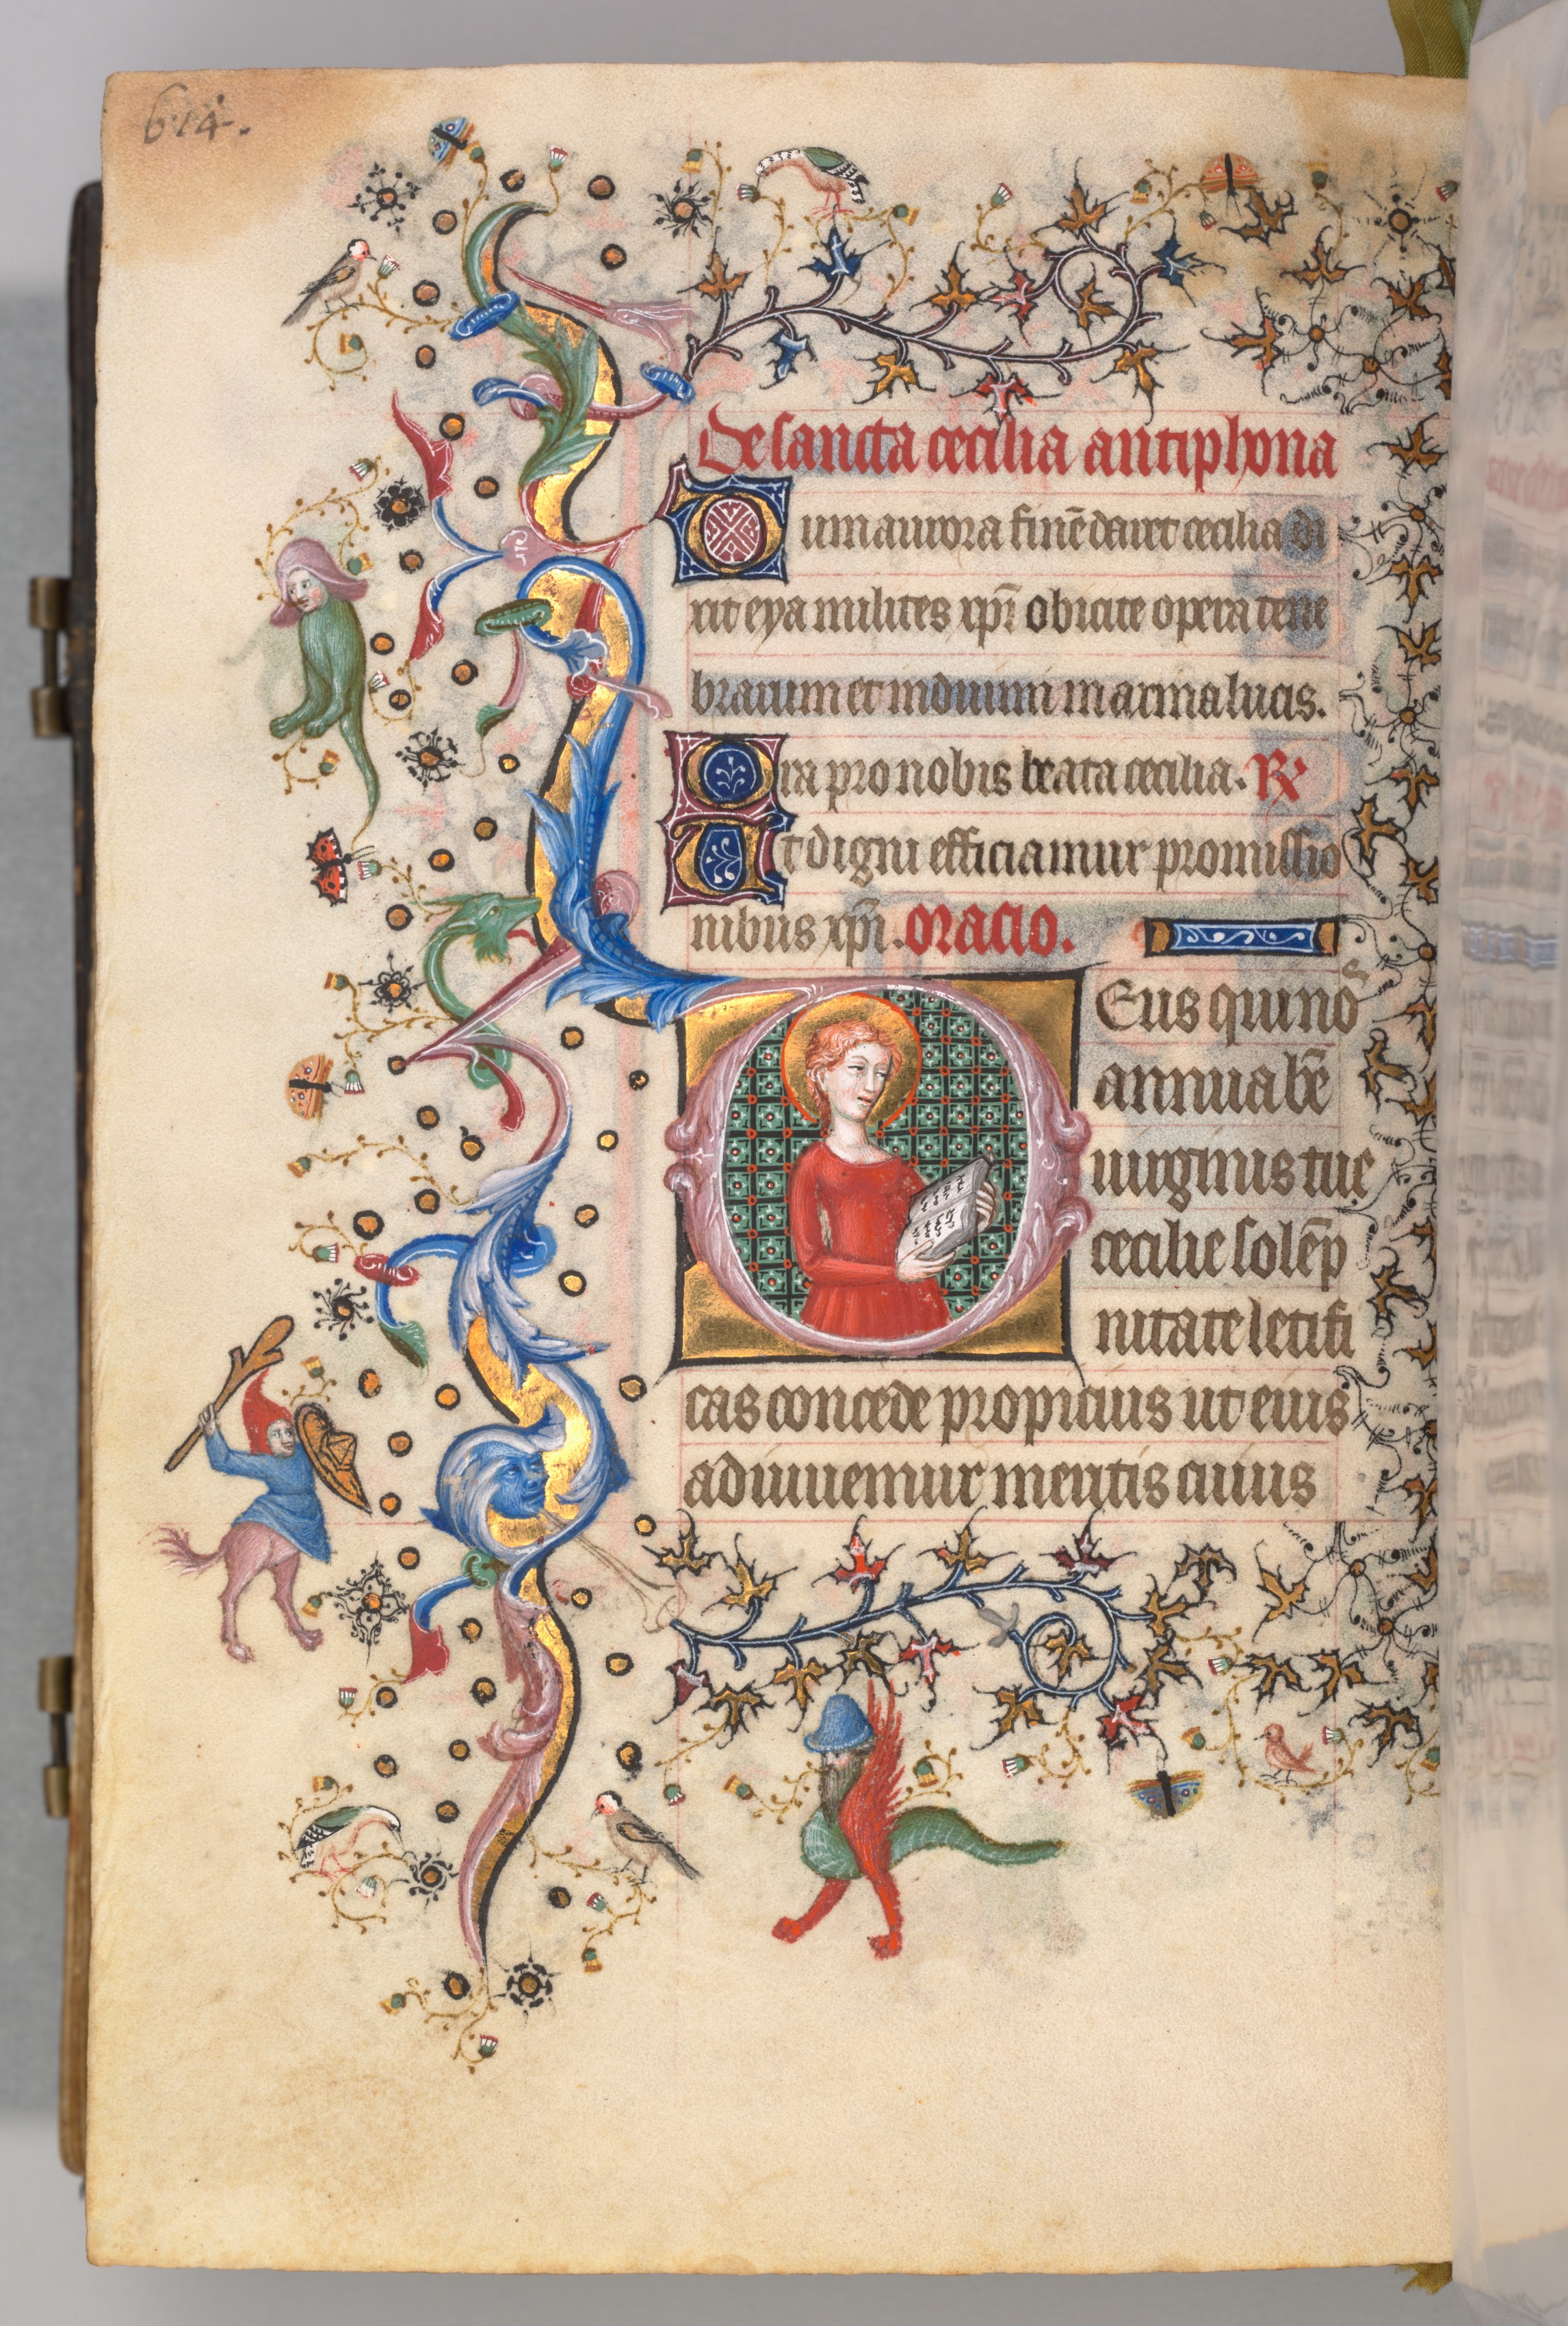 614.
De sancta cecilia antiphona
Dum aurora finē daret cecilia di
xit eya milites xpī obicite opera tene
brarum et induimini arma lucis.
Ora pro nobis beata cecilia. R̸
Ut digni efficiamur promissio
nibus xpī. Oracio.
Deus qui nos
annua bē
virginis tue
cecilie solēp
nitate letifi
cas concede propicius ut eius
adiuuemur meritis cuius